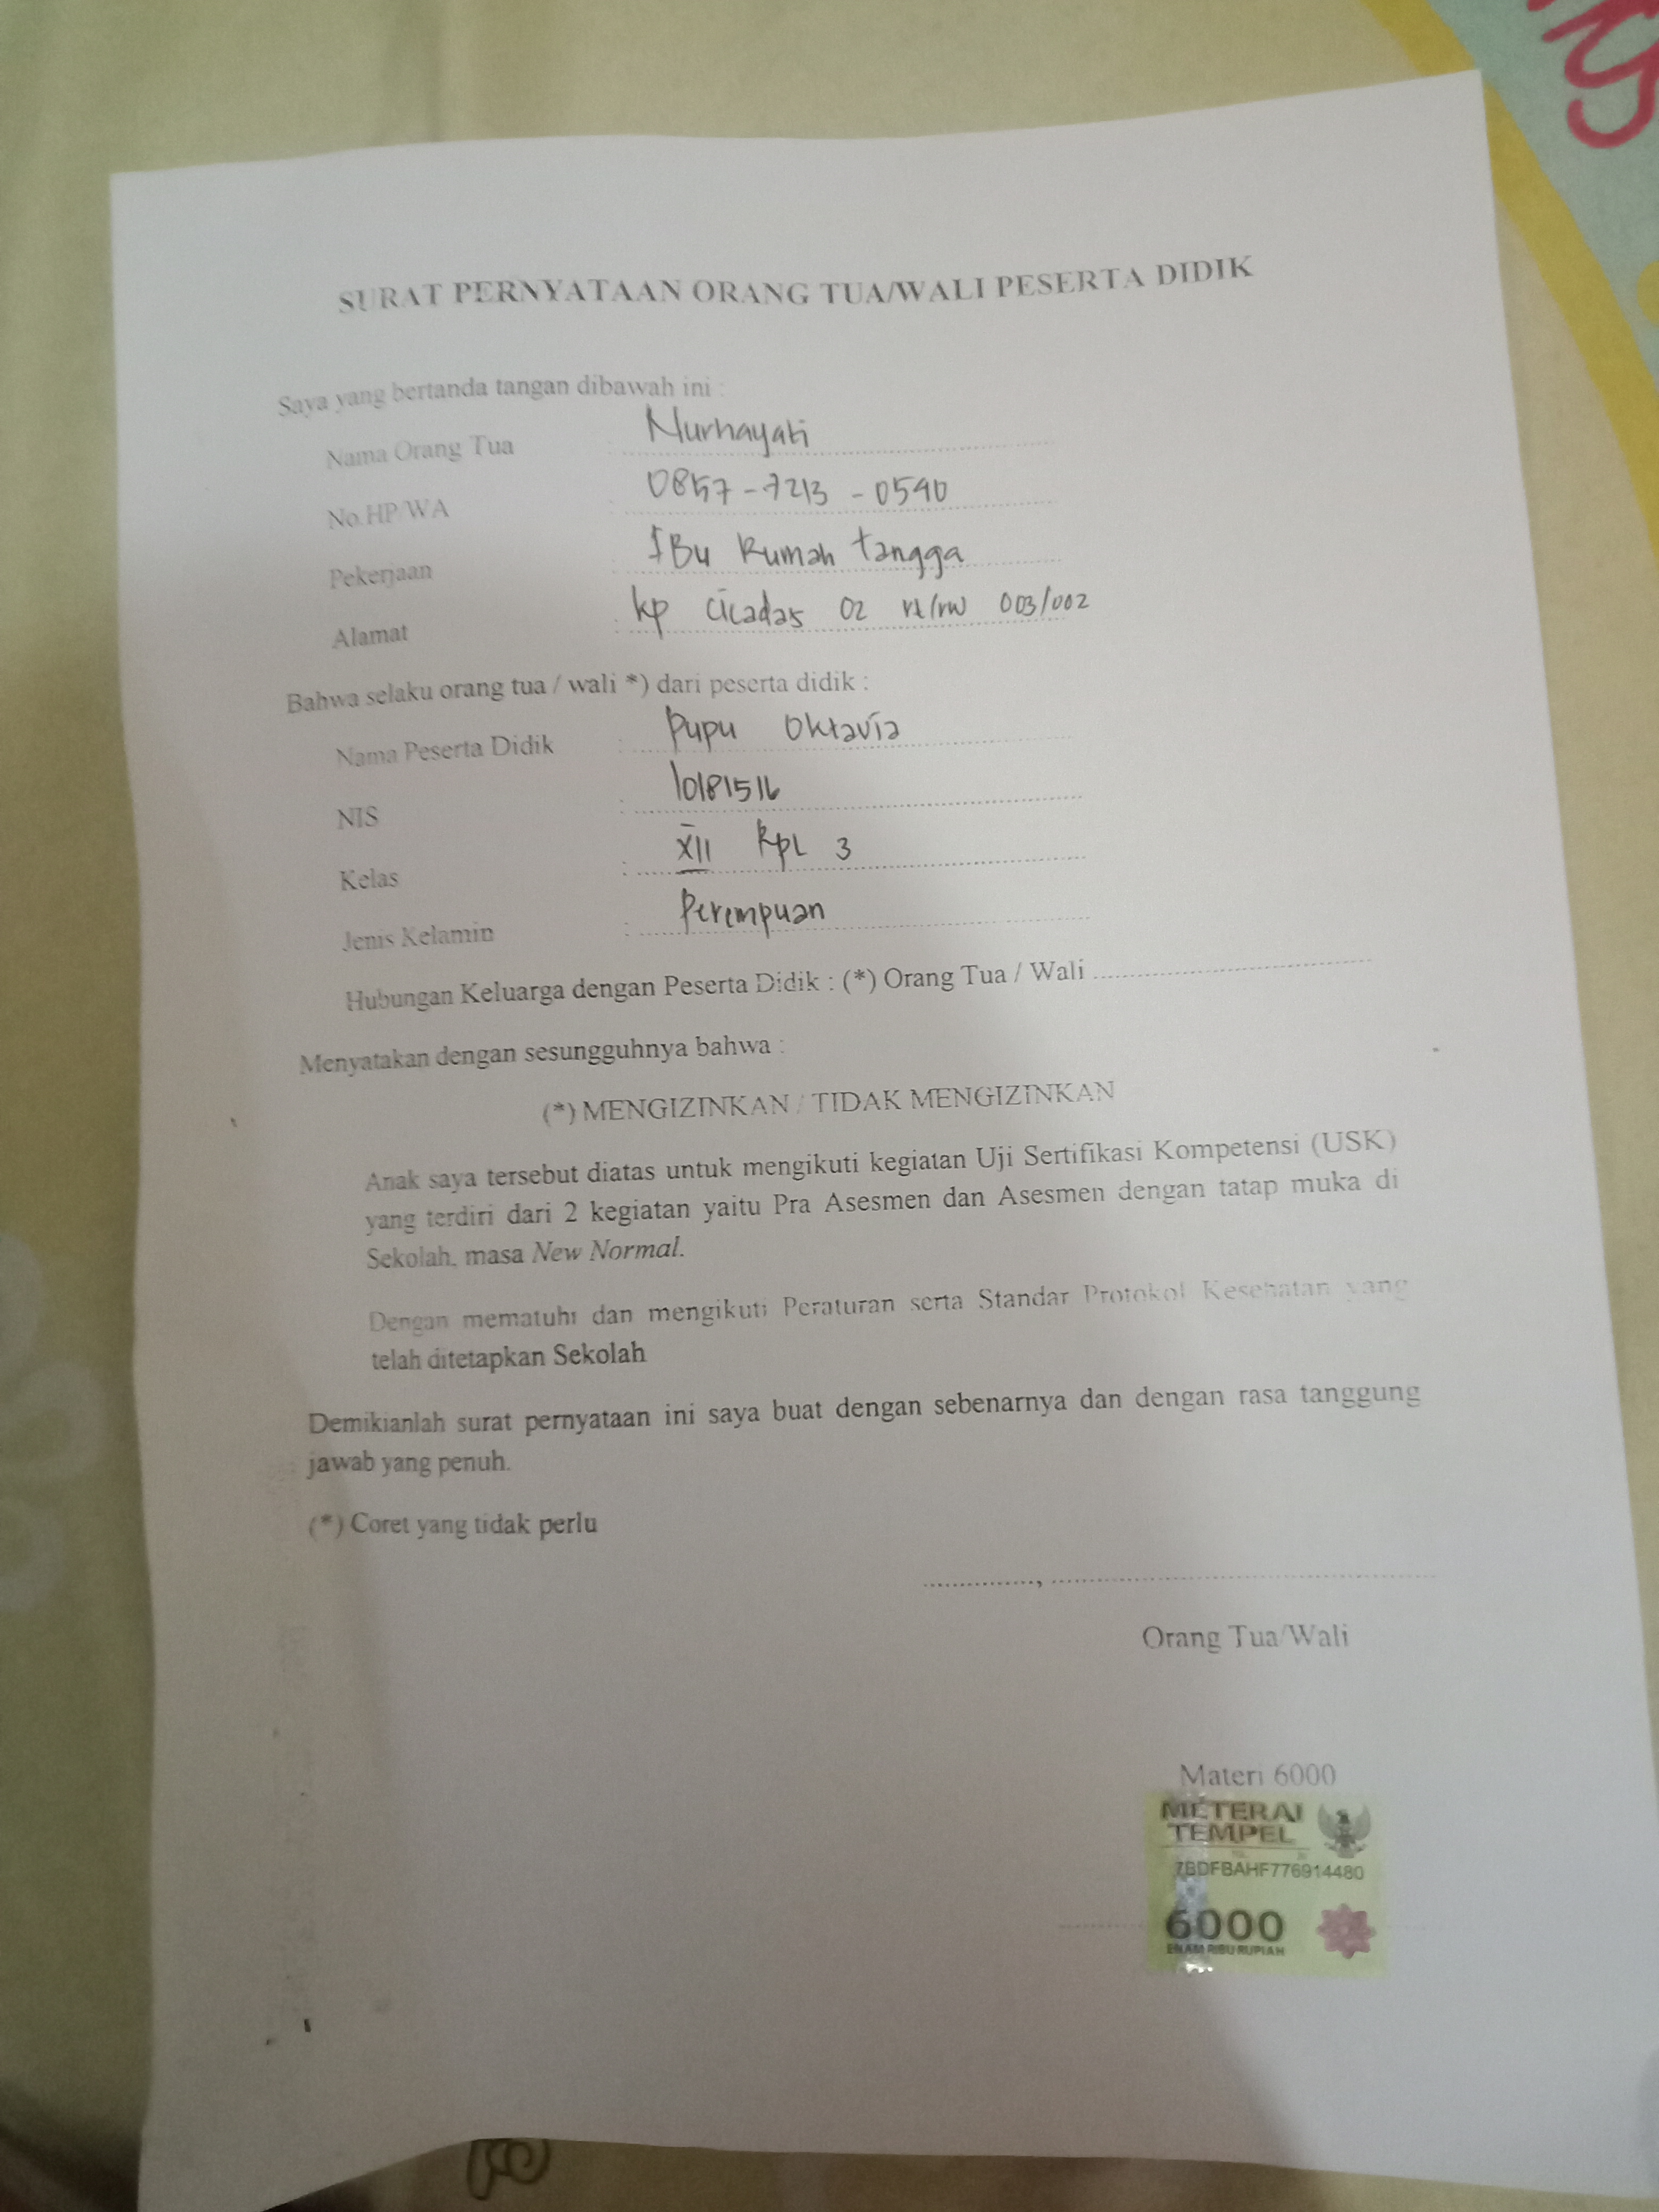 SURAT PERNYATAAN ORANG TUA/WALI PESERTA DIDIK
Saya yang bertanda tangan dibawah ini :
Nama Orang Tua : Nurhayati
No.HP/WA : 0857-7213-0590
Pekerjaan : IBu Rumah tangga
Alamat : kp cicadas 02 rt/rw 003/002
Bahwa selaku orang tua / wali *) dari peserta didik :
Nama Peserta Didik : Pupu Oktavia
NIS : 10181516
Kelas : XII RPL 3
Jenis Kelamin : Perempuan
Hubungan Keluarga dengan Peserta Didik : (*) Orang Tua / Wali ..............................
Menyatakan dengan sesungguhnya bahwa :
(*) MENGIZINKAN / TIDAK MENGIZINKAN
Anak saya tersebut diatas untuk mengikuti kegiatan Uji Sertifikasi Kompetensi (USK)
yang terdiri dari 2 kegiatan yaitu Pra Asesmen dan Asesmen dengan tatap muka di
Sekolah, masa New Normal.
Dengan mematuhi dan mengikuti Peraturan serta Standar Protokol Kesehatan yang
telah ditetapkan Sekolah
Demikianlah surat pernyataan ini saya buat dengan sebenarnya dan dengan rasa tanggung
jawab yang penuh.
(*) Coret yang tidak perlu
..............., ..................................................
Orang Tua/Wali
Materi 6000
METERAI
TEMPEL
7BDFBAHF776914480
6000
ENAM RIBU RUPIAH